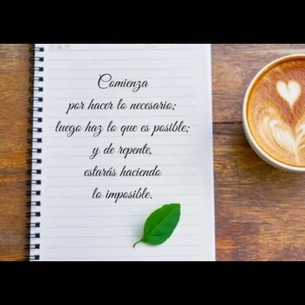 Comienza
por hacer lo necesario;
luego haz lo que es posible;
y de repente,
estarás haciendo
lo imposible.